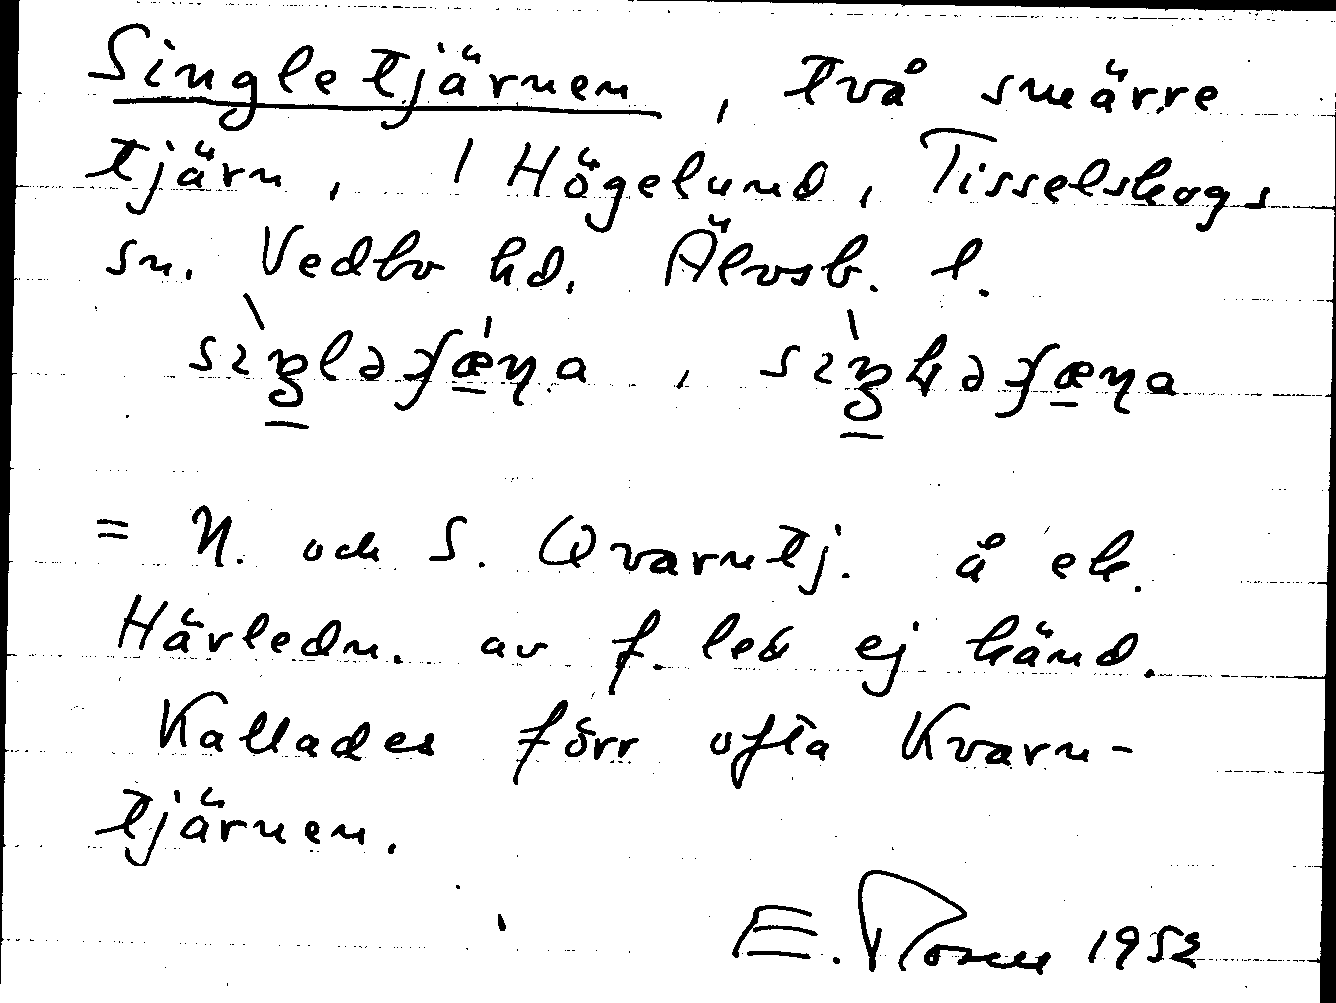 Singletjärnen, två smärre
tjärn, 1 Högelund, Tisselskogs
sn. Vedbo hd. Älvsb. l.
= N. och S. Qvarntj. å ek.
Härledn. av f. led ej känd.
Kallades förr ofta Kvarn-
tjärnen.
E. Rosell 1952